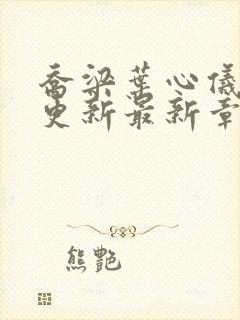 乔梁叶心仪
更新最新章
熊艳